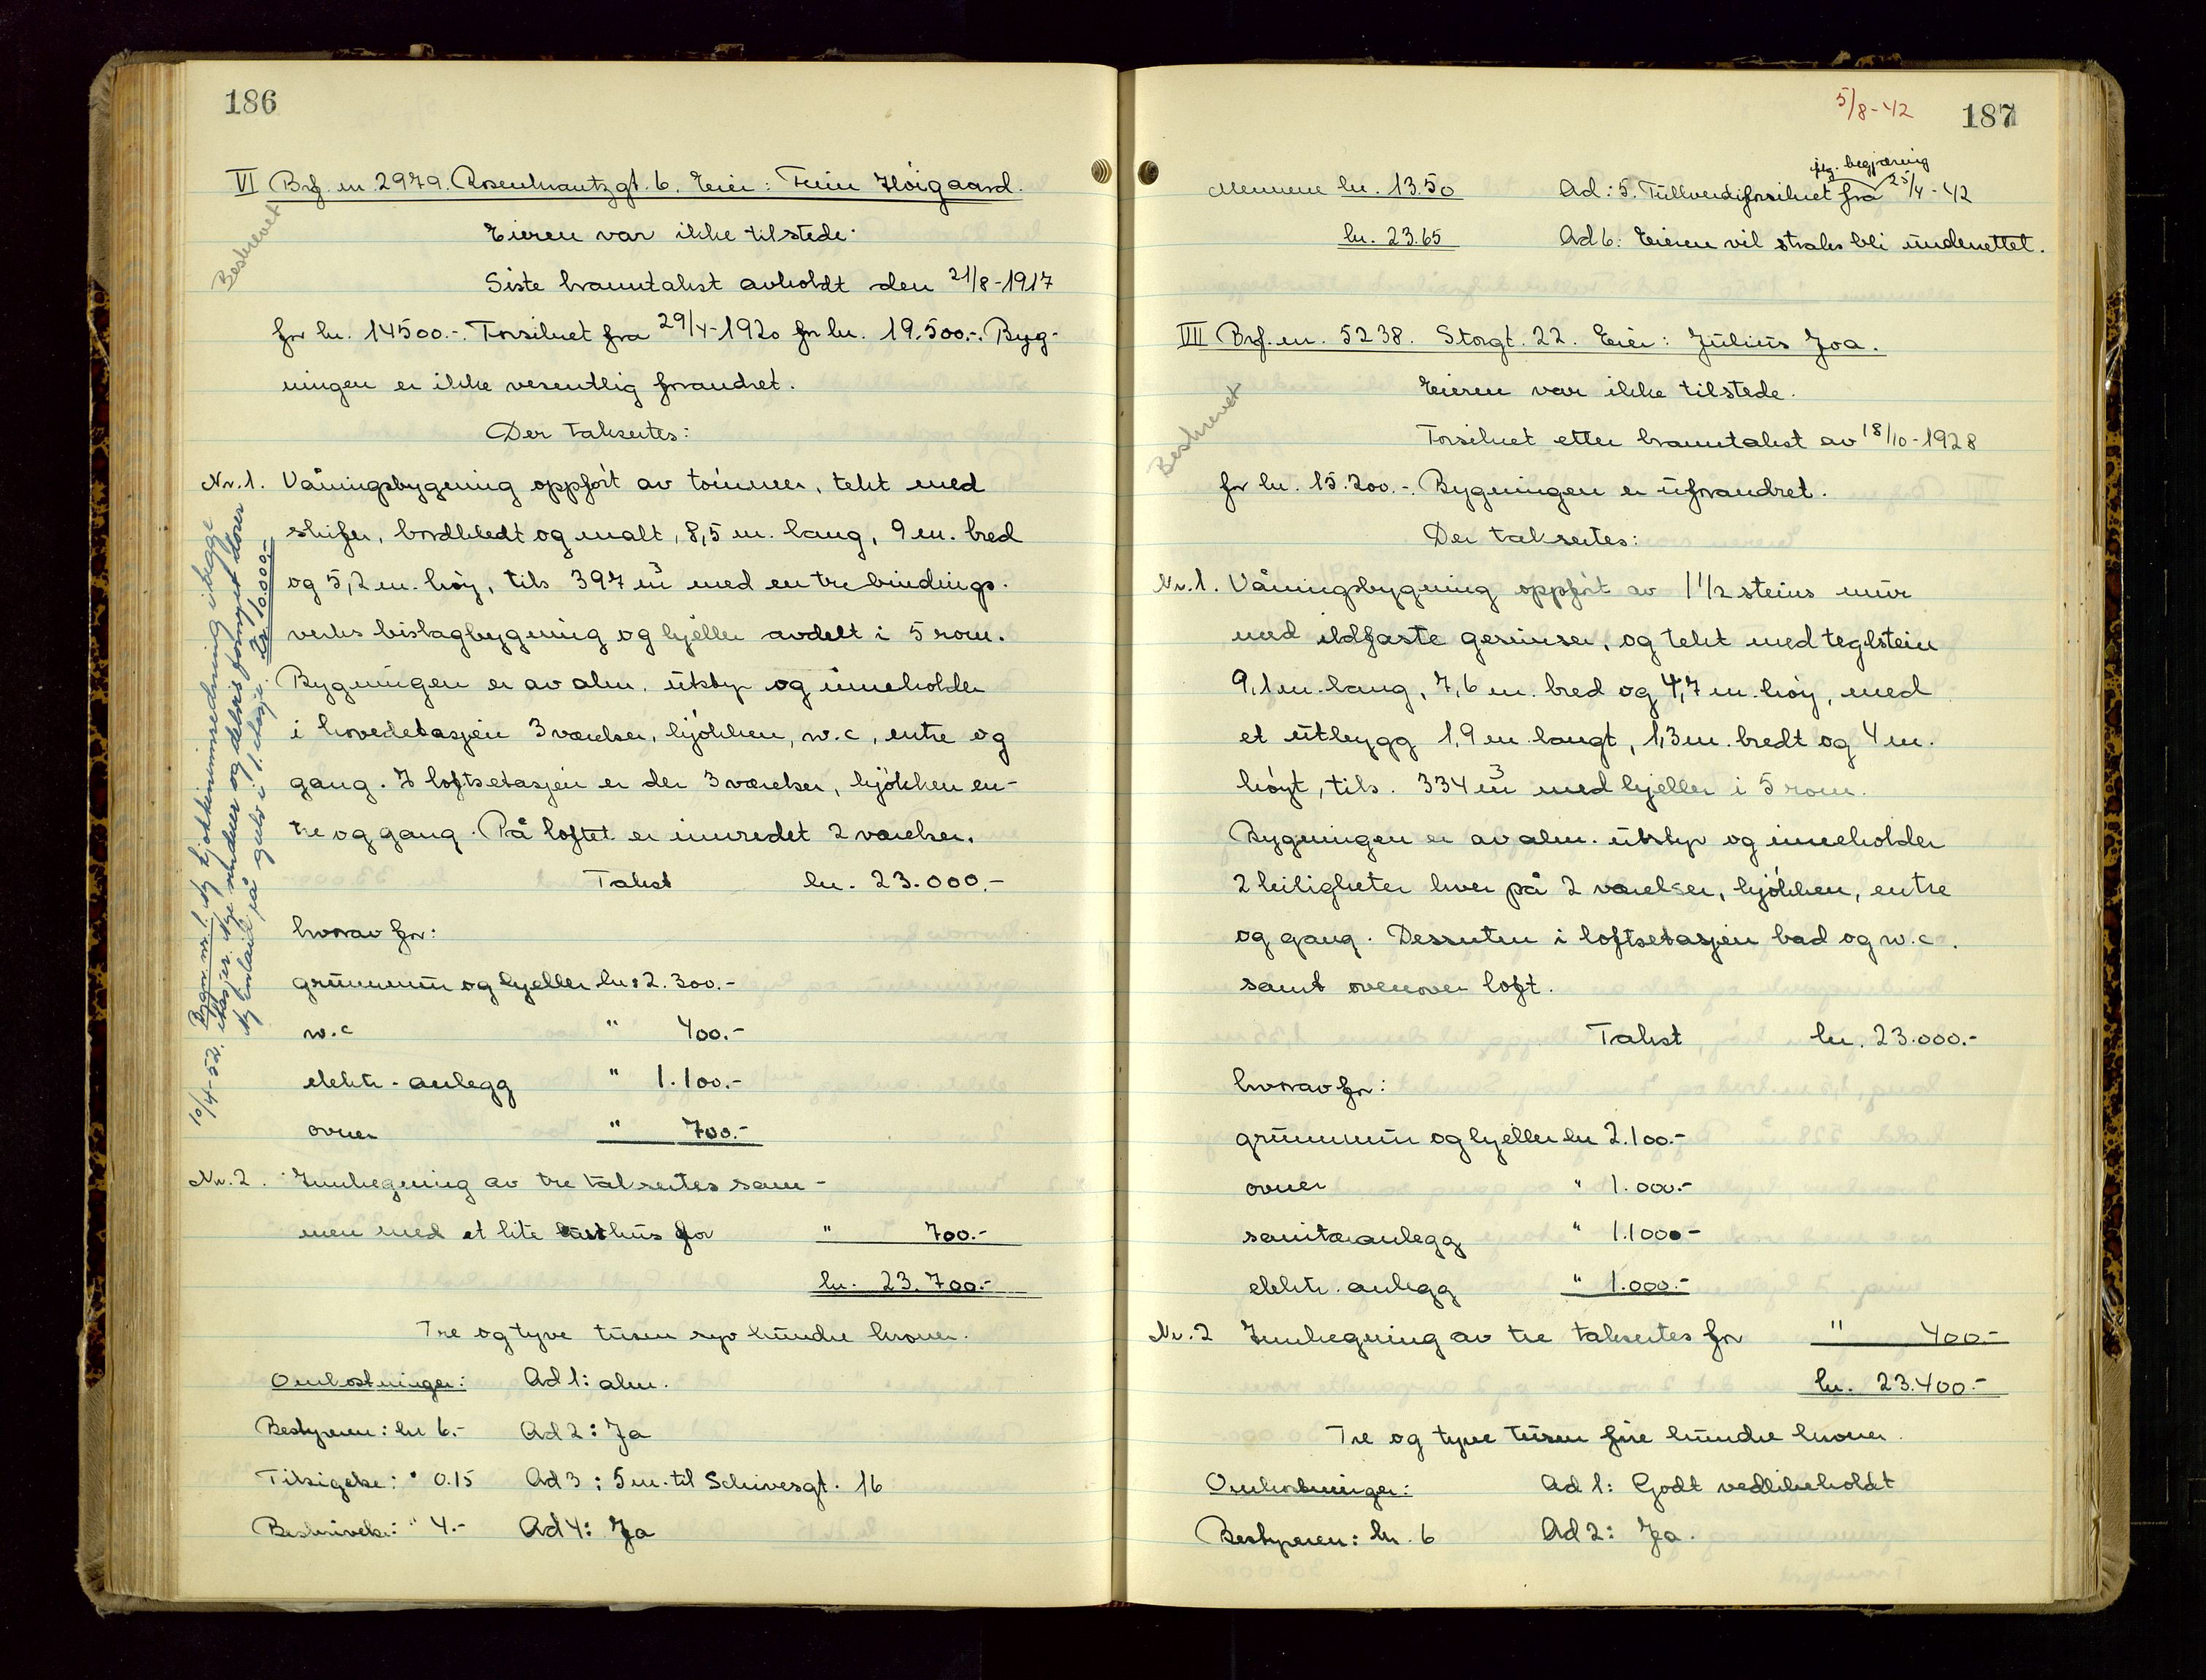 186
VI Brf. nr. 2979. Rosenkrantzgt. 6. Eier: Finn Höigaard.
Beskrevet
Eieren var ikke tilstede.
Siste branntakst avholdt den 21/8-1917
for kr. 14500.-. Forsikret fra 29/4-1920 for kr. 19.500.-. Byg-
ningen er ikke vesentlig forandret.
Der takseres:
Nr. 1. Våningsbygning oppfört av tömmer, tekt med
skifer, bordkledt og malt, 8,5 m. lang, 9 m. bred
og 5,2 m. höy, tils 397 m³ med en tre bindings-
verks bislagbygning og kjeller avdelt i 5 rom.
Bygningen er av alm. utstyr og inneholder
i hovedetasjen 3 værelser, kjökken, w.c, entre og
gang. I loftsetasjen er der 3 værelser, kjökken en-
tre og gang. På loftet er innredet 2 værelser.
Takst kr. 23.000.-
hvorav for:
grunnmur og kjeller kr. 2.300.-
w.c " 400.-
elektr. anlegg " 1.100.-
ovner " 700.-
Nr. 2. Innhegning av tre takseres sam-
men med et lite lysthus for " 700.-
kr. 23.700.-
Tre og tyve tusen syv hundre kroner.
Omkostninger: Ad 1: alm.
Bestyreren: kr 6.- Ad 2: Ja
Tilsigelse: " 0.15 Ad 3: 5 m. til Schivesgt. 16
Beskrivelse: " 4.- Ad 4: Ja
10/4-52. Bygn. nr. 1. Ny kjökkeninnredning i begge
etasjer. Nye vinduer og delvis fornyet dører
Ny linoleum på gulv i 1. etasje. Kr 10.000.-
5/8-42
187
Mennene kr. 13.50 Ad: 5. Fullverdiforsikret fra 25/4-42
iflg. begjæring
kr. 23.65 Ad 6: Eieren vil straks bli underrettet.
VII Brf. nr. 5238. Storgt. 22. Eier: Julius Joa.
Beskrevet
Eieren var ikke tilstede.
Forsikret etter branntakst av 18/10-1928
for kr. 15.200.-. Bygningen er uforandret.
Der takseres:
Nr. 1. Våningsbygning oppfört av 1 1/2 steins mur
med ildfaste gesimser, og tekt med teglstein
9,1 m. lang, 7,6 m. bred og 4,7 m. höy, med
et utbygg 1,9 m. langt, 1,3 m. bredt og 4 m.
höyt, tils. 334 m³ med kjeller i 5 rom.
Bygningen er av alm. utstyr og inneholder
2 leiligheter hver på 2 værelser, kjökken, entre
og gang. Dessuten i loftsetasjen bad og w.c.
samt ovenover loft.
Takst kr. 23.000.-
hvorav for:
grunnmur og kjeller kr 2.100.-
ovner " 1.000.-
sanitæranlegg " 1.1000-
elektr. anlegg " 1.000.-
Nr. 2 Innhegning av tre takseres for " 400.-
kr. 23.400.-
Tre og tyve tusen fire hundre kroner.
Omkostninger: Ad 1: Godt vedlikeholdt
Bestyreren: kr. 6 Ad 2: Ja.